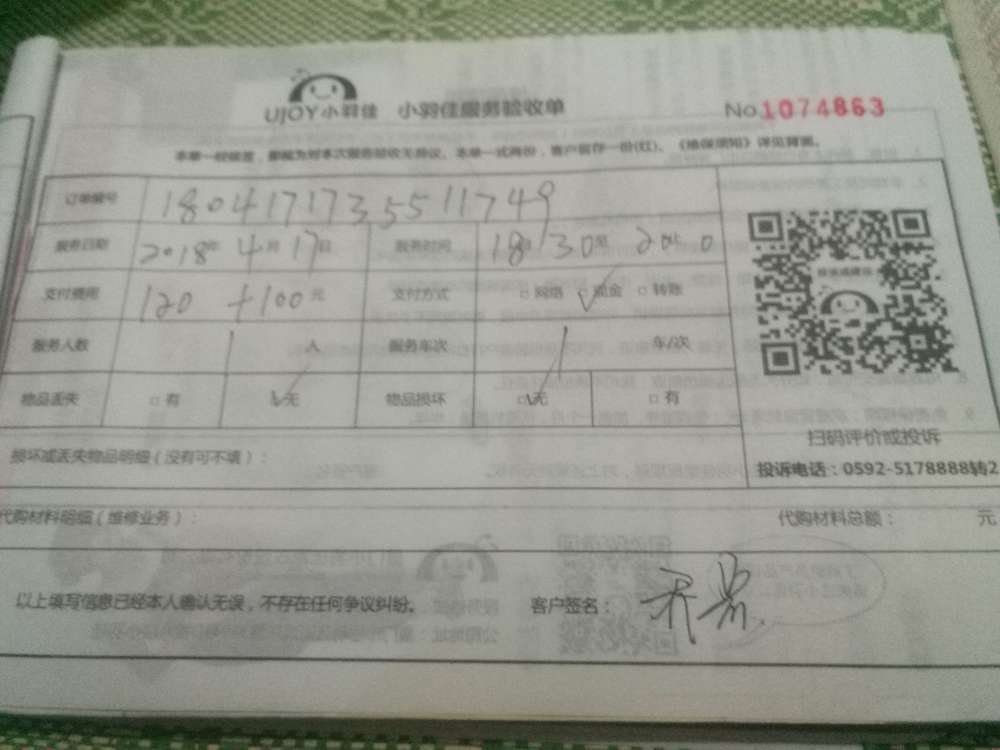 UJOY小羽佳 小羽佳服务验收单 No.1074863
本单一经签签，即视为对本次服务验收无异议。本单一式两份，客户留存一份(红)。《维保须知》详见背面。
订单编号 18041717355511749
服务日期 2018年4月17日 服务时间 18时30至20时0
支付费用 120+100元 支付方式 □网络 ☑现金 □转账
服务人数 1人 服务车次 1 车/次
物品丢失 □有 ☑无 物品损坏 ☑无 □有
损坏或丢失物品明细（没有可不填）：
扫码评价或投诉
投诉电话：0592-5178888转2
代购材料明细（维修业务）： 代购材料总额： 元
以上填写信息已经本人确认无误，不存在任何争议纠纷。 客户签名：